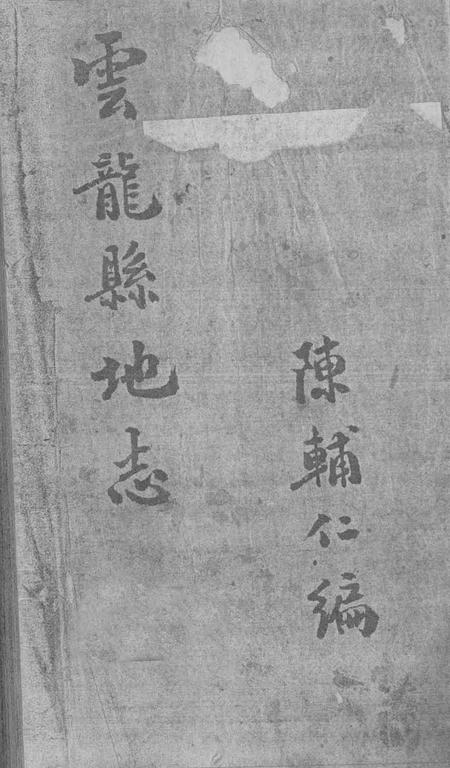 雲龍縣地志
陳輔仁編